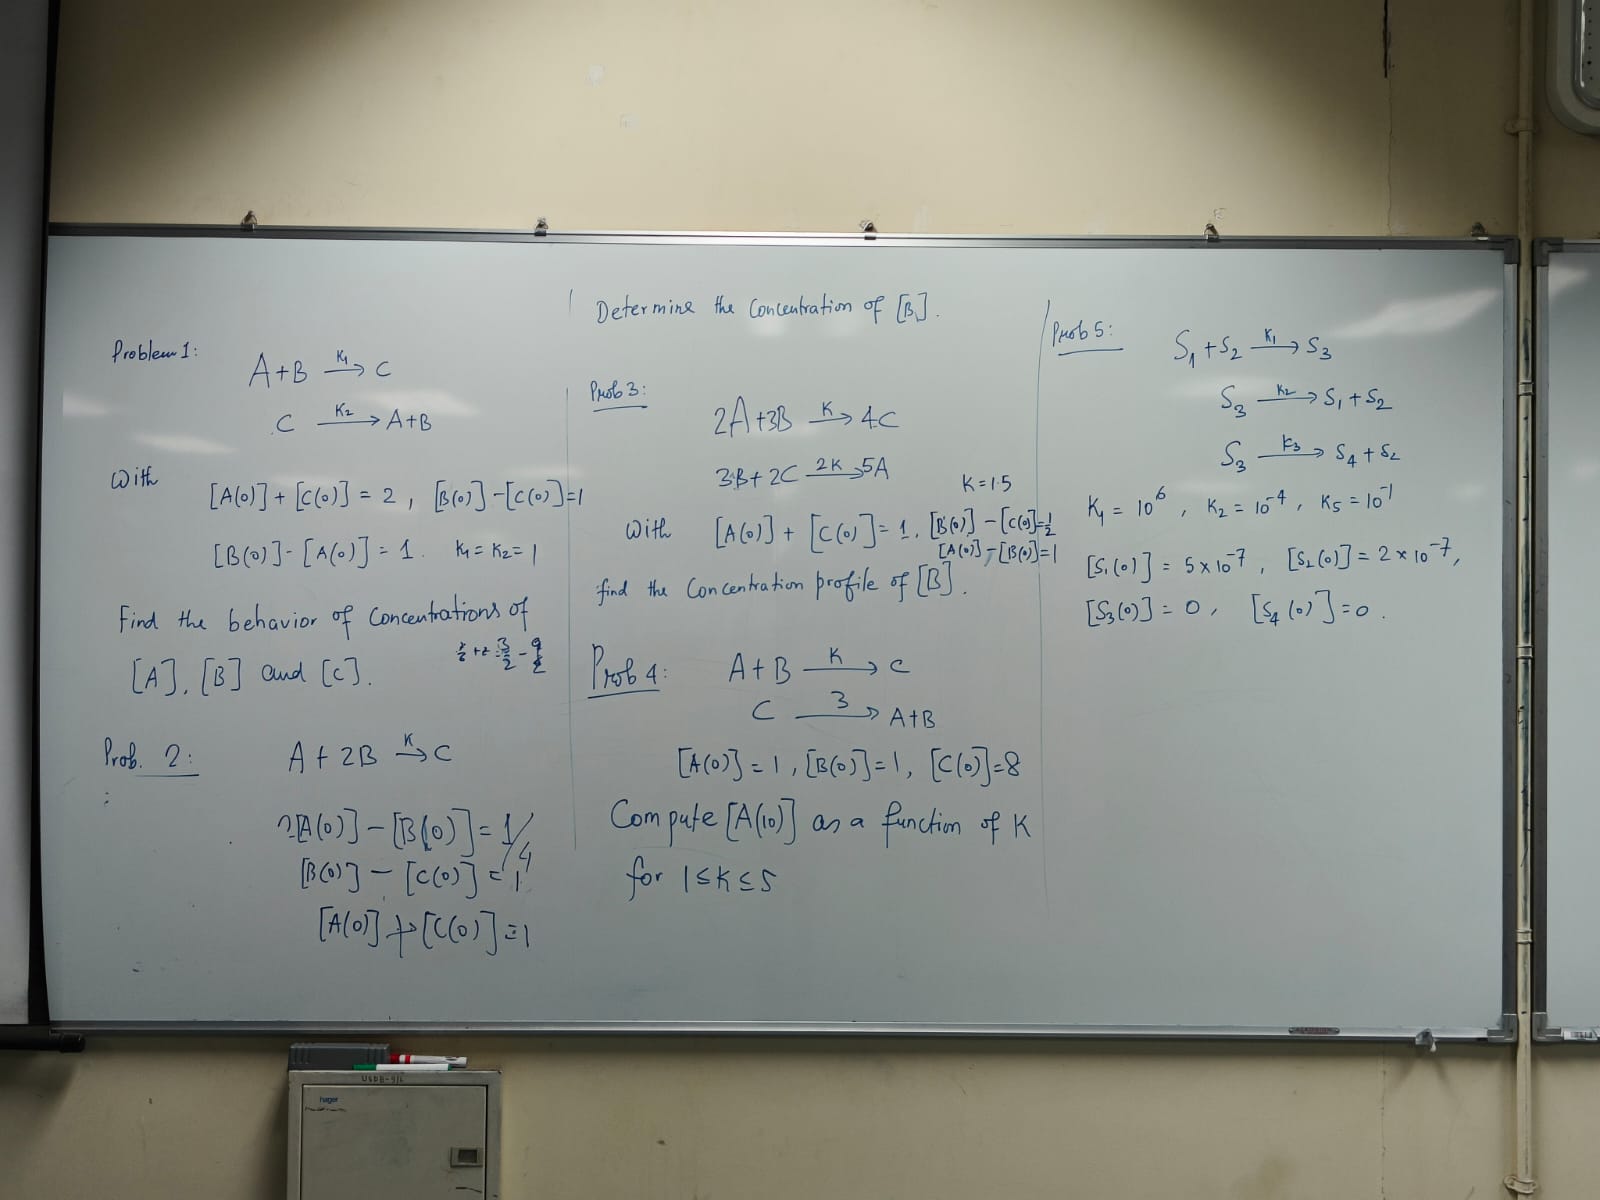 Problem 1:
A+B K1→ C
C K2→ A+B
With
[A(0)] + [C(0)] = 2, [B(0)]-[C(0)]=1
[B(0)]-[A(0)] = 1. K1 = K2 = 1
Find the behavior of Concentrations of
[A], [B] and [C].
Prob. 2:
A + 2B K→ C
2[A(0)] - [B(0)] = 1/4
[B(0)] - [C(0)] = 1
[A(0)] + [C(0)] = 1
Determine the Concentration of [B].
Prob 3:
2A+3B K→ 4C
3B+2C 2K→ 5A
K=1.5
With [A(0)] + [C(0)] = 1, [B(0)] - [C(0)] = 1/2
[A(0)]-[B(0)]=1
find the Concentration profile of [B].
Prob 4:
A+B K→ C
C 3→ A+B
[A(0)] = 1, [B(0)]=1, [C(0)]=8
Compute [A(10)] as a function of K
for 1≤K≤5
Prob 5:
S1 + S2 K1→ S3
S3 K2→ S1 + S2
S3 K3→ S4 + S2
K1 = 10^6, K2 = 10^-4, K5 = 10^-1
[S1(0)] = 5×10^-7, [S2(0)] = 2×10^-7,
[S3(0)] = 0, [S4(0)] = 0.
USDB-91L
hager